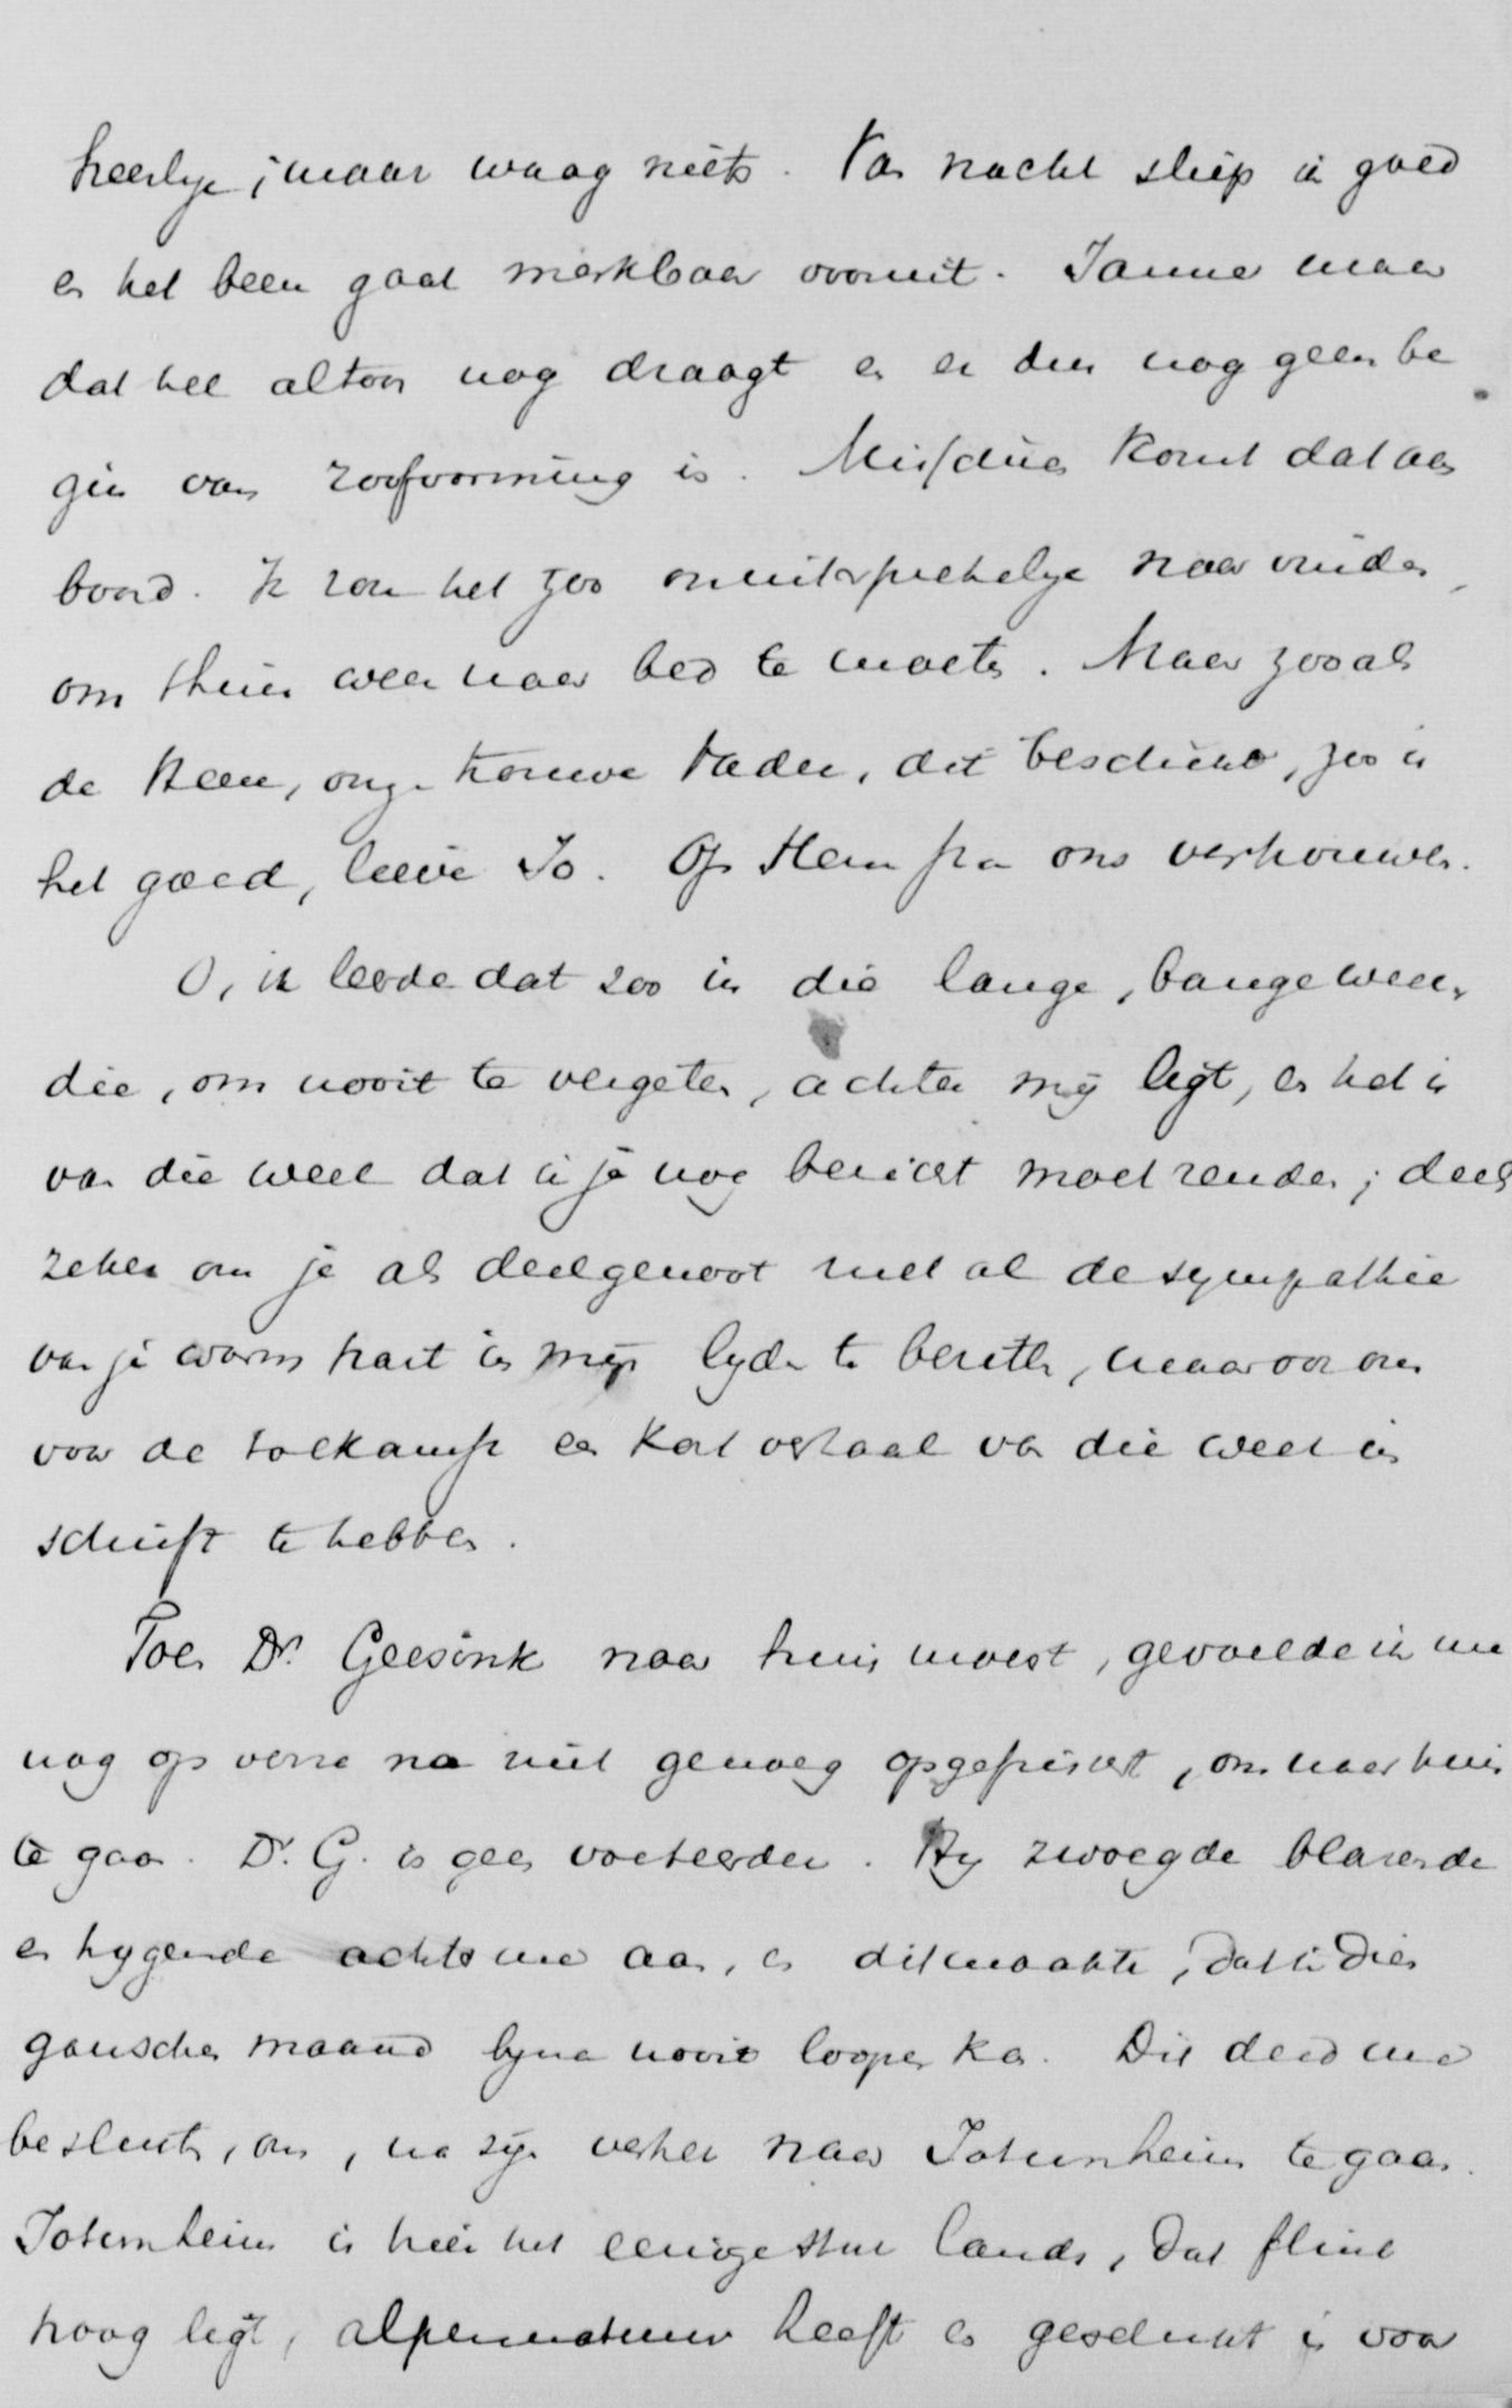 heerlijk; maar waag niets. Van nacht sliep ik goed
en het been gaat merkbaar vooruit. Jammer maar
dat het altoos nog draagt en er dus nog geen be
gin van roofvorming is. Misschien komt dat aan
boord. Ik zou het zoo onuitsprekelijk naar vinden,
om thuis weer naar bed te moeten. Maar zooals
de Heer, onze trouwe Vader, dit beschikt, zoo is
het goed, lieve Jo. Op Hem sta ons vertrouwen.
O, ik leerde dat zoo in die lange, bange week,
die, om nooit te vergeten, achter mij ligt, en het is
van die week dat ik je nog bericht moet zenden; deels
zeker om je als deelgenoot met al de sympathie
van je warm hart in mijn lijden te bezitten, maar ook om
voor de toekomst een kort verhaal van die week in
schrift te hebben.
Toen Dr. Geesink naar huis moest, gevoelde ik me
nog op verre na niet genoeg opgefrischt, om naar huis
te gaan. Dr. G. is geen voetreerder. Hij zwoegde blazende
en hijgende achter me aan, en dit maakte, dat ik dien
ganschen maand bijna nooit loopen kon. Dit deed me
besluiten, om, na zijn vertrek naar Jotunheim te gaan.
Jotunheim is hier het eenige stuk lands, dat flink
hoog ligt, alpennatuur heeft en geschikt is voor